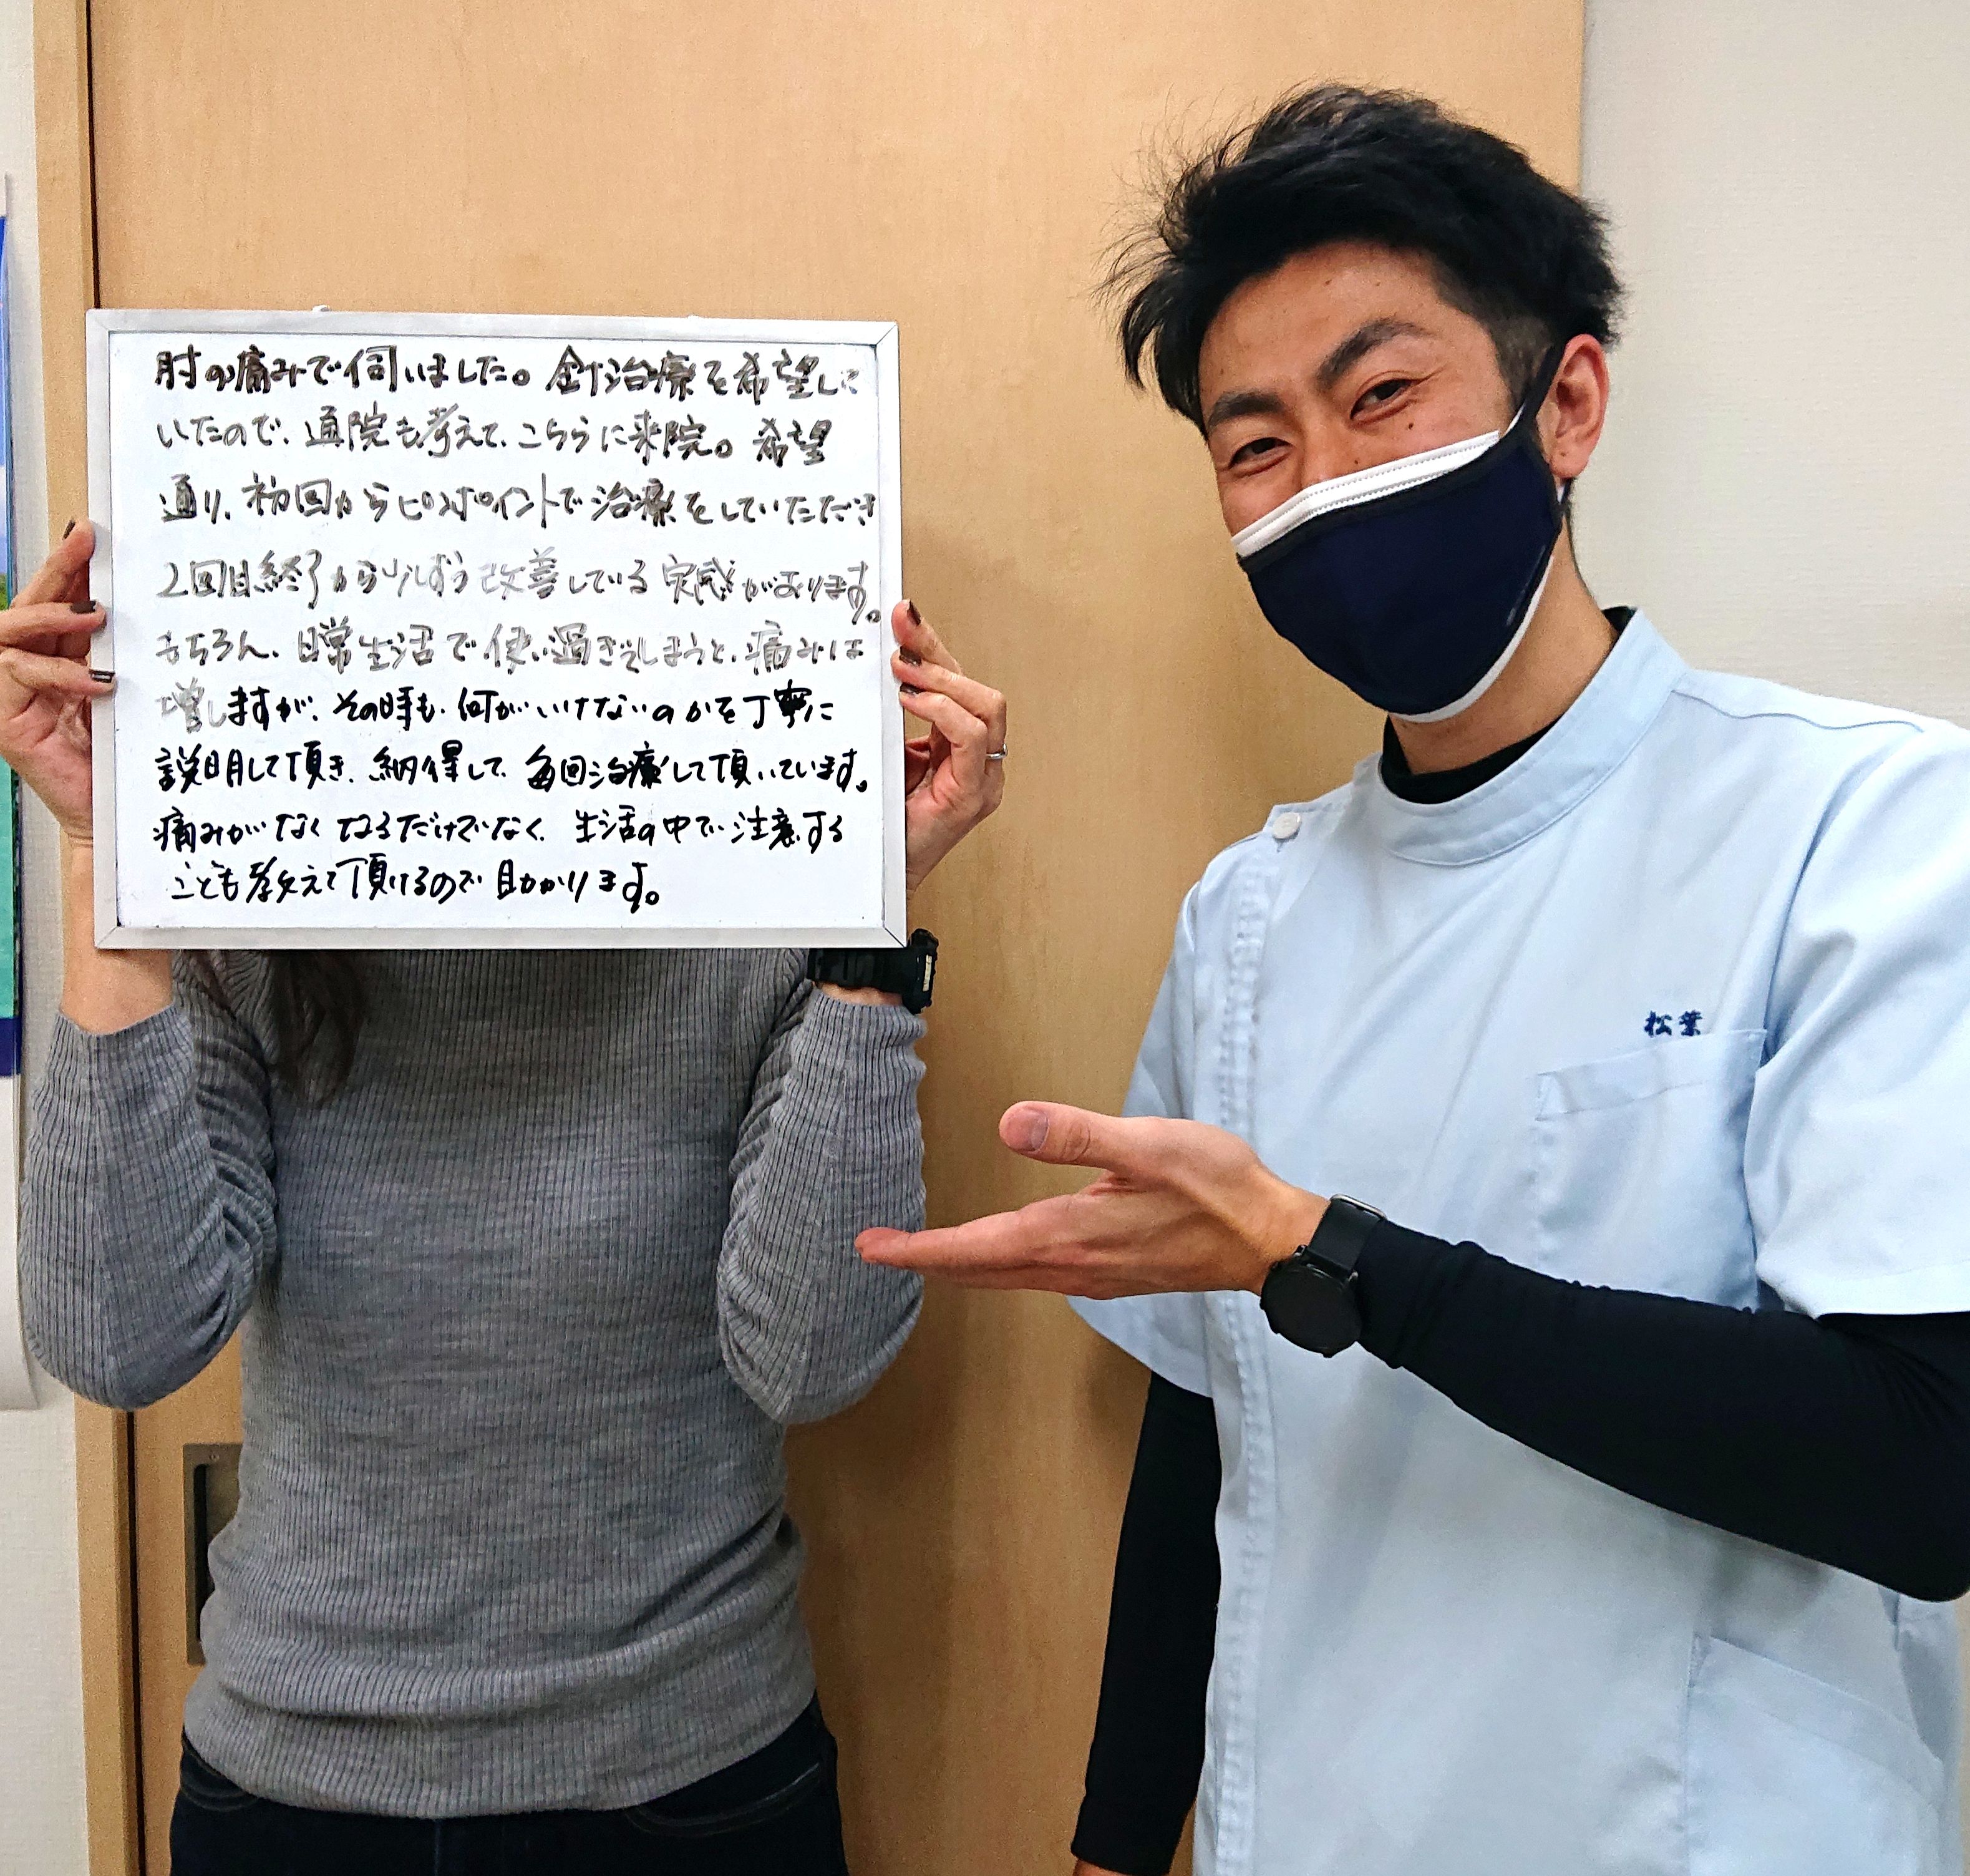 肘の痛みで伺いました。針治療を希望して
いたので、通院も考えて、こちらに来院。希望
通り、初回からピンポイントで治療をしていただき
2回目終了から少しずつ改善している実感があります。
もちろん、日常生活で使い過ぎてしまうと、痛みは
増しますが、その時も、何がいけないのかを丁寧に
説明して頂き、納得して、毎回治療して頂いています。
痛みがなくなるだけでなく、生活の中で注意する
ことも教えて頂けるので助かります。
松葉